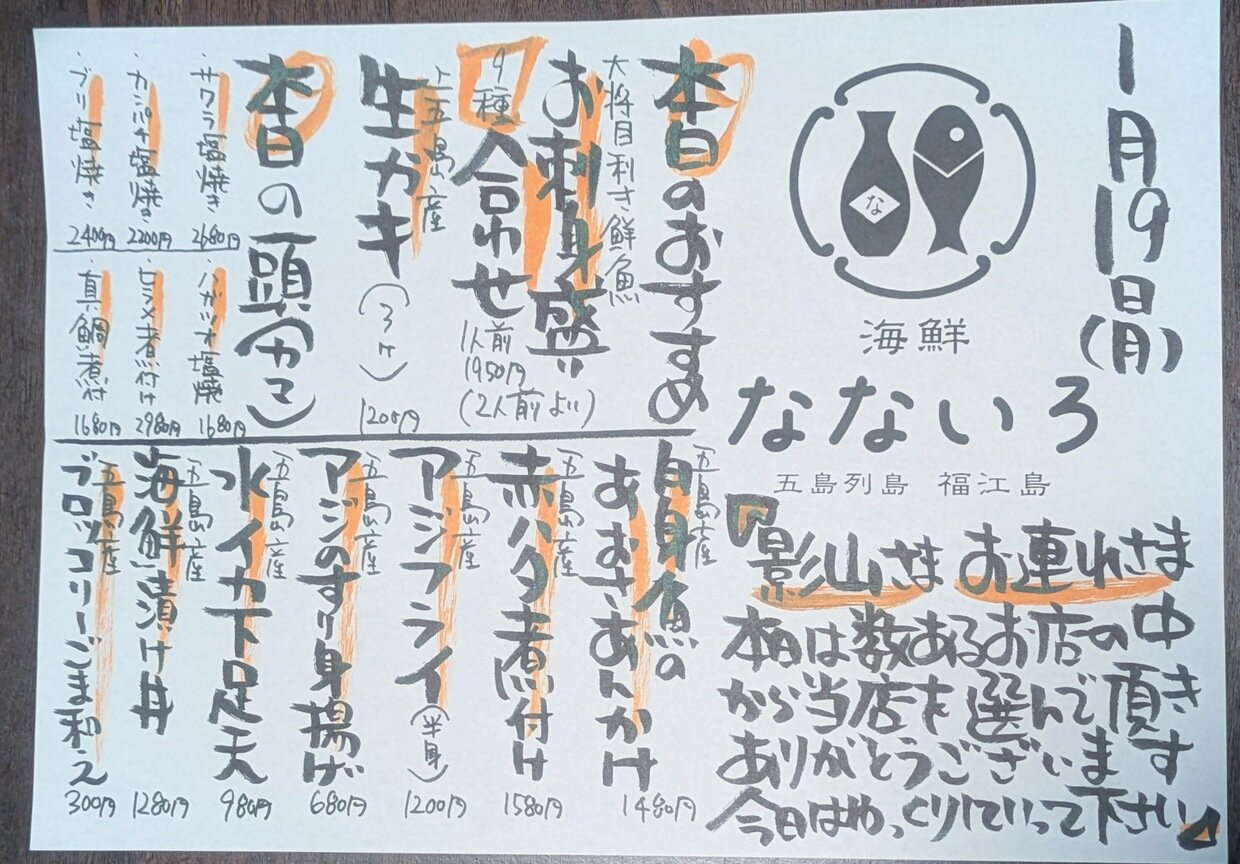 1月19日(月)
な
海鮮
なないろ
五島列島 福江島
『影山さま お連れさま
本日は数あるお店の中
から当店を選んで頂き
ありがとうございます
今日はゆっくりしていって下さい』
本日のおすすめ
大将目利き鮮魚
お刺身盛い
9種合わせ
1人前
1950円
(2人前より)
上五島産
生ガキ(3ヶ)
1200円
本日の頭(カマ)
・サワラ塩焼き 2680円
・カンパチ塩焼き 2200円
・ブリ塩焼き 2400円
・ハガツオ塩焼 1680円
・ヒラメ煮付け 2980円
・真鯛煮付 1680円
五島産
白身魚の
あおさあんかけ 1480円
五島産
赤ハタ煮付け 1580円
五島産
アジフライ(半身) 1200円
五島産
アジのすり身揚げ 680円
五島産
水イカ下足天 980円
五島産
海鮮漬け丼 1280円
五島産
ブロッコリーごま和え 300円